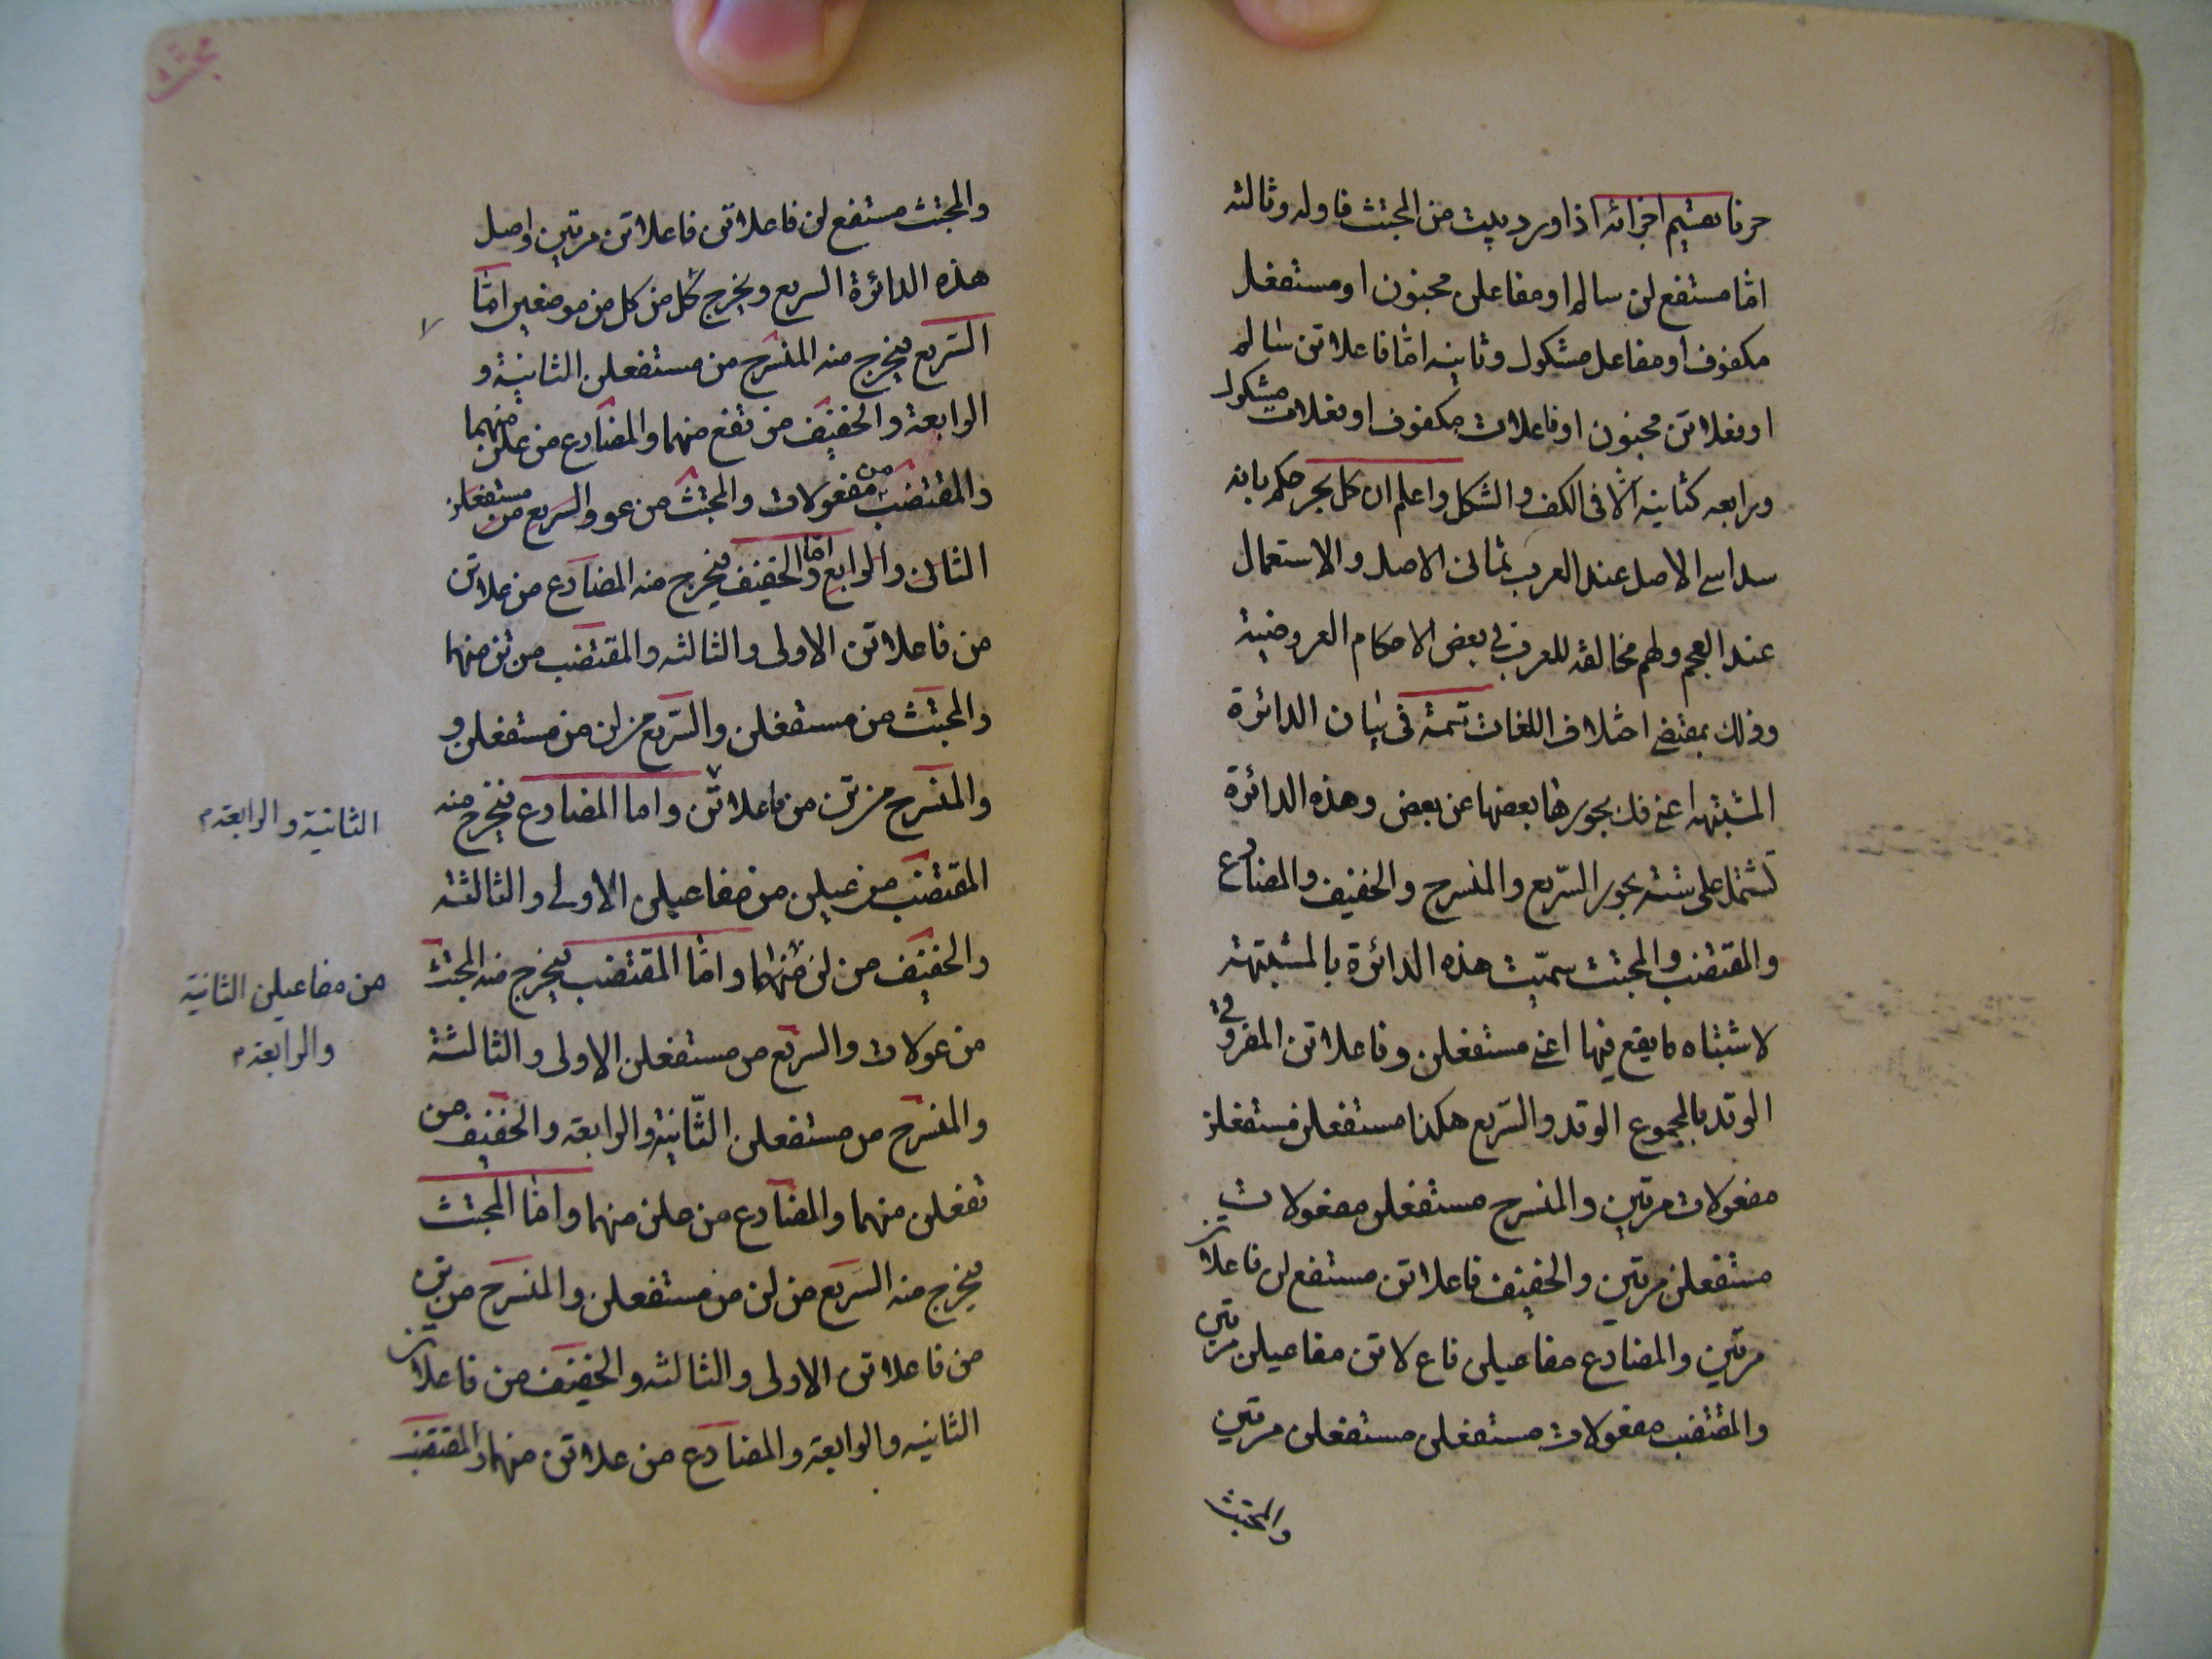 حرفا تعتيم اجزائه اذا ورد بيت من المجتث فاوله وثالثه
امّا مستفع لن سالم او مفاعلن مخبون او مستفعل
مكفوف او مفاعل مشكول وثانيه امّا فاعلاتن سالم
او فعلاتن مخبون او فاعلات مكفوف او فعلات مشكول
ورابعه كثانيه الّا فى الكف والشكل واعلم ان كل بحر حكم بانه
سداسى الاصل عند العرب ثمانى الاصل والاستعمال
عند العجم ولهم مخالفة للعرب فى بعض الاحكام العروضية
وذلك بمقتضى اختلاف اللغات تتمة فى بيان الدائرة
المشتبهه اعنى فك بحورها بعضها عن بعض وهذه الدائرة
تشتمل على ستة بحور السّريع والمنسرح والخفيف والمضارع
والمقتضب والمجتث سمّيت هذه الدائرة بالمشتبهة
لاشتباه ما يقع فيها اعنى مستفعلن وفاعلاتن المفروق
الوتد بالمجموع الوتد والسّريع هكذا مستفعلن مستفعلن
مفعولات مرتين والمنسرح مستفعلن مفعولات
مستفعلن مرتين والخفيف فاعلاتن مستفع لن فاعلاتن
مرتين والمضارع مفاعيلن فاع لاتن مفاعيلن مرتين
والمقتضب مفعولات مستفعلن مستفعلن مرتين
والمجتث
مجتث
والمجتث مستفع لن فاعلاتن فاعلاتن مرتين واصل
هذه الدائرة السريع ويخرج كل من كل من موضعين امّا
السّريع فيخرج منه المنسرح من مستفعلن الثانية و
الرابعة والخفيف من تفع منهما والمضارع من علن منهما
والمقتضب من مفعولات والمجتث من عو والسريع من مستفعلن
الثانى والرابع وامّا الخفيف فيخرج منه المضارع من علاتن
من فاعلاتن الاولى والثالثه والمقتضب من تن منهما
والمجتث من مستفعلن والسّريع من لن من مستفعلن و
والمنسرح من تن من فاعلاتن واما المضارع فيخرج منه
الثانية والرابعة م
المقتضب من عيلن من مفاعيلن الاولى والثالثة
والخفيف من لن منهما وامّا المقتضب فيخرج منه المجتث
من مفاعيلن الثانية
والرابعة م
من عولات والسريع من مستفعلن الاولى والثالثة
والمنسرح من مستفعلن الثّانية والرابعة والخفيف من
تفعلن منهما والمضارع من علن منهما وامّا المجتث
فيخرج منه السريع من لن من مستفعلن والمنسرح من تن
من فاعلاتن الاولى والثالثه والخفيف من فاعلاتن
الثانيه والرابعة والمضارع من علاتن منهما والمقتضب